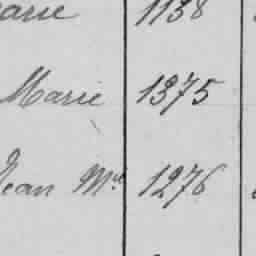 arie 1138
Marie 1375
Jean Mie 1276